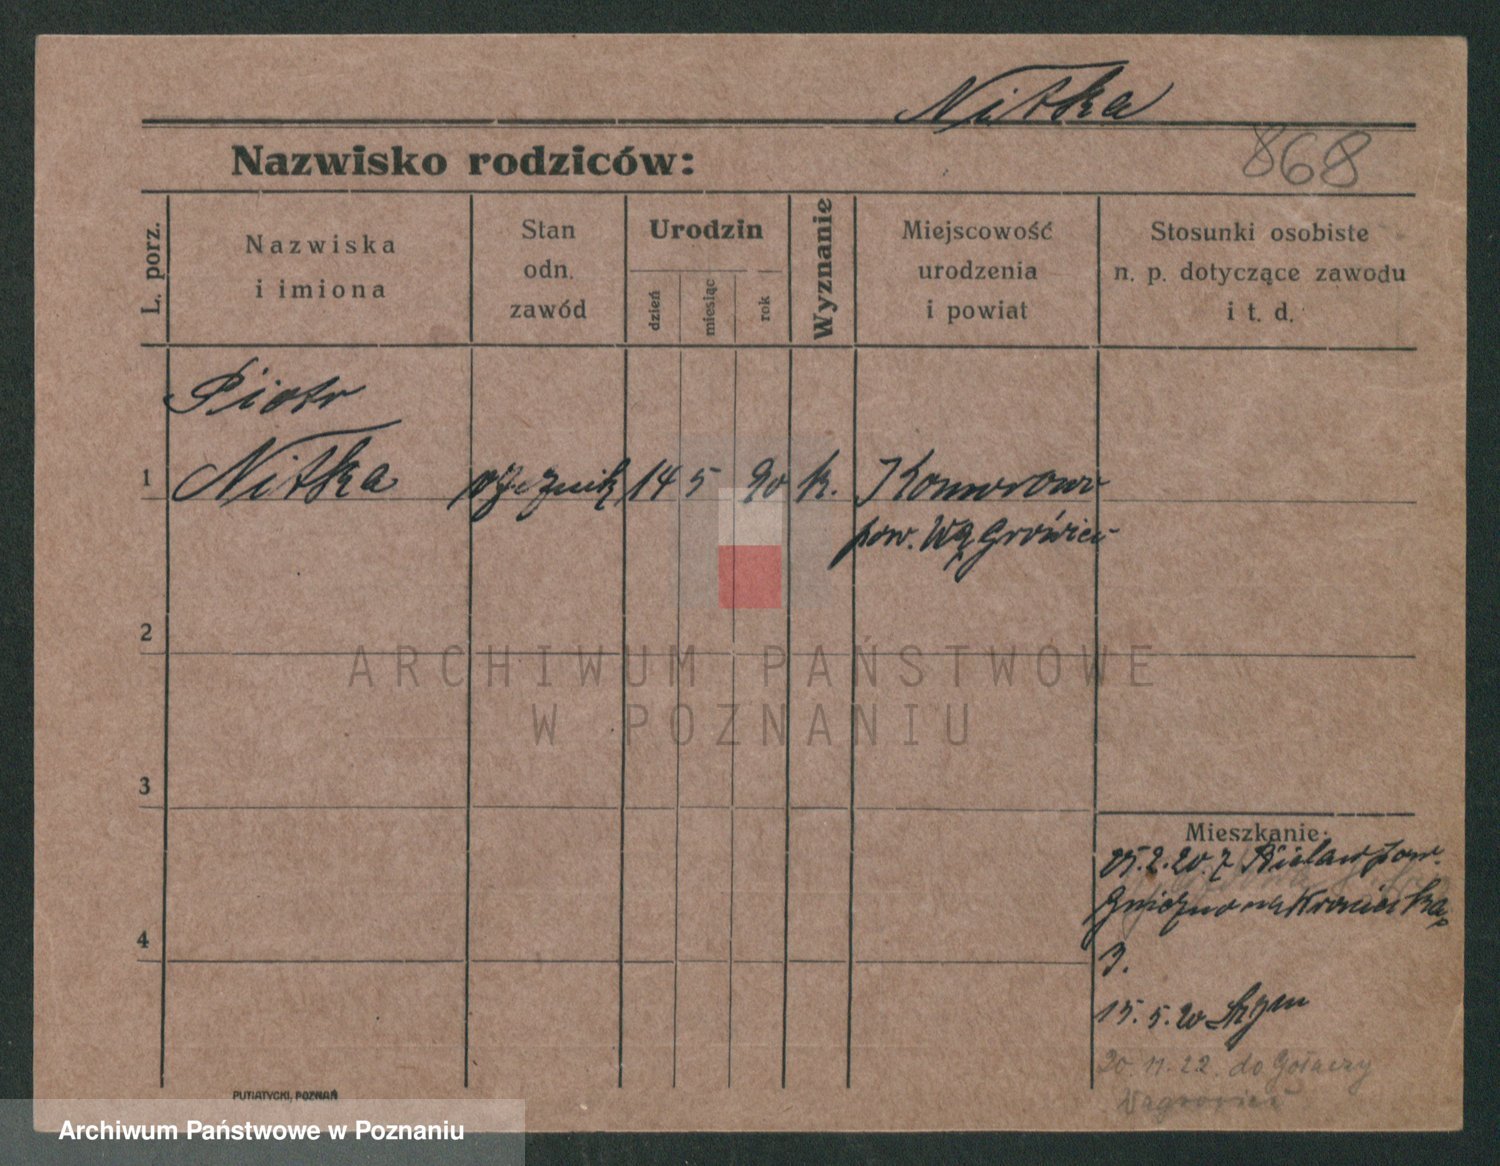 Nitka
868
Nazwisko rodziców:
L. porz.
Nazwiska
i imiona
Stan
odn.
zawód
Urodzin
dzień
miesiąc
rok
Wyznanie
Miejscowość
urodzenia
i powiat
Stosunki osobiste
n. p. dotyczące zawodu
i t. d.
Piotr
1 Nitka rzeznik 14 5 90 k. Komorowo
pow. Wągrówiec
2
ARCHIWUM PAŃSTWOWE
W POZNANIU
3
Mieszkanie:
25.2.20. z pow.
Gniezno na
4
3.
15. 5. 20
20 11. 22. do Gołańczy
Wągrowiec
PUTIATYCKI, POZNAŃ
Archiwum Państwowe w Poznaniu